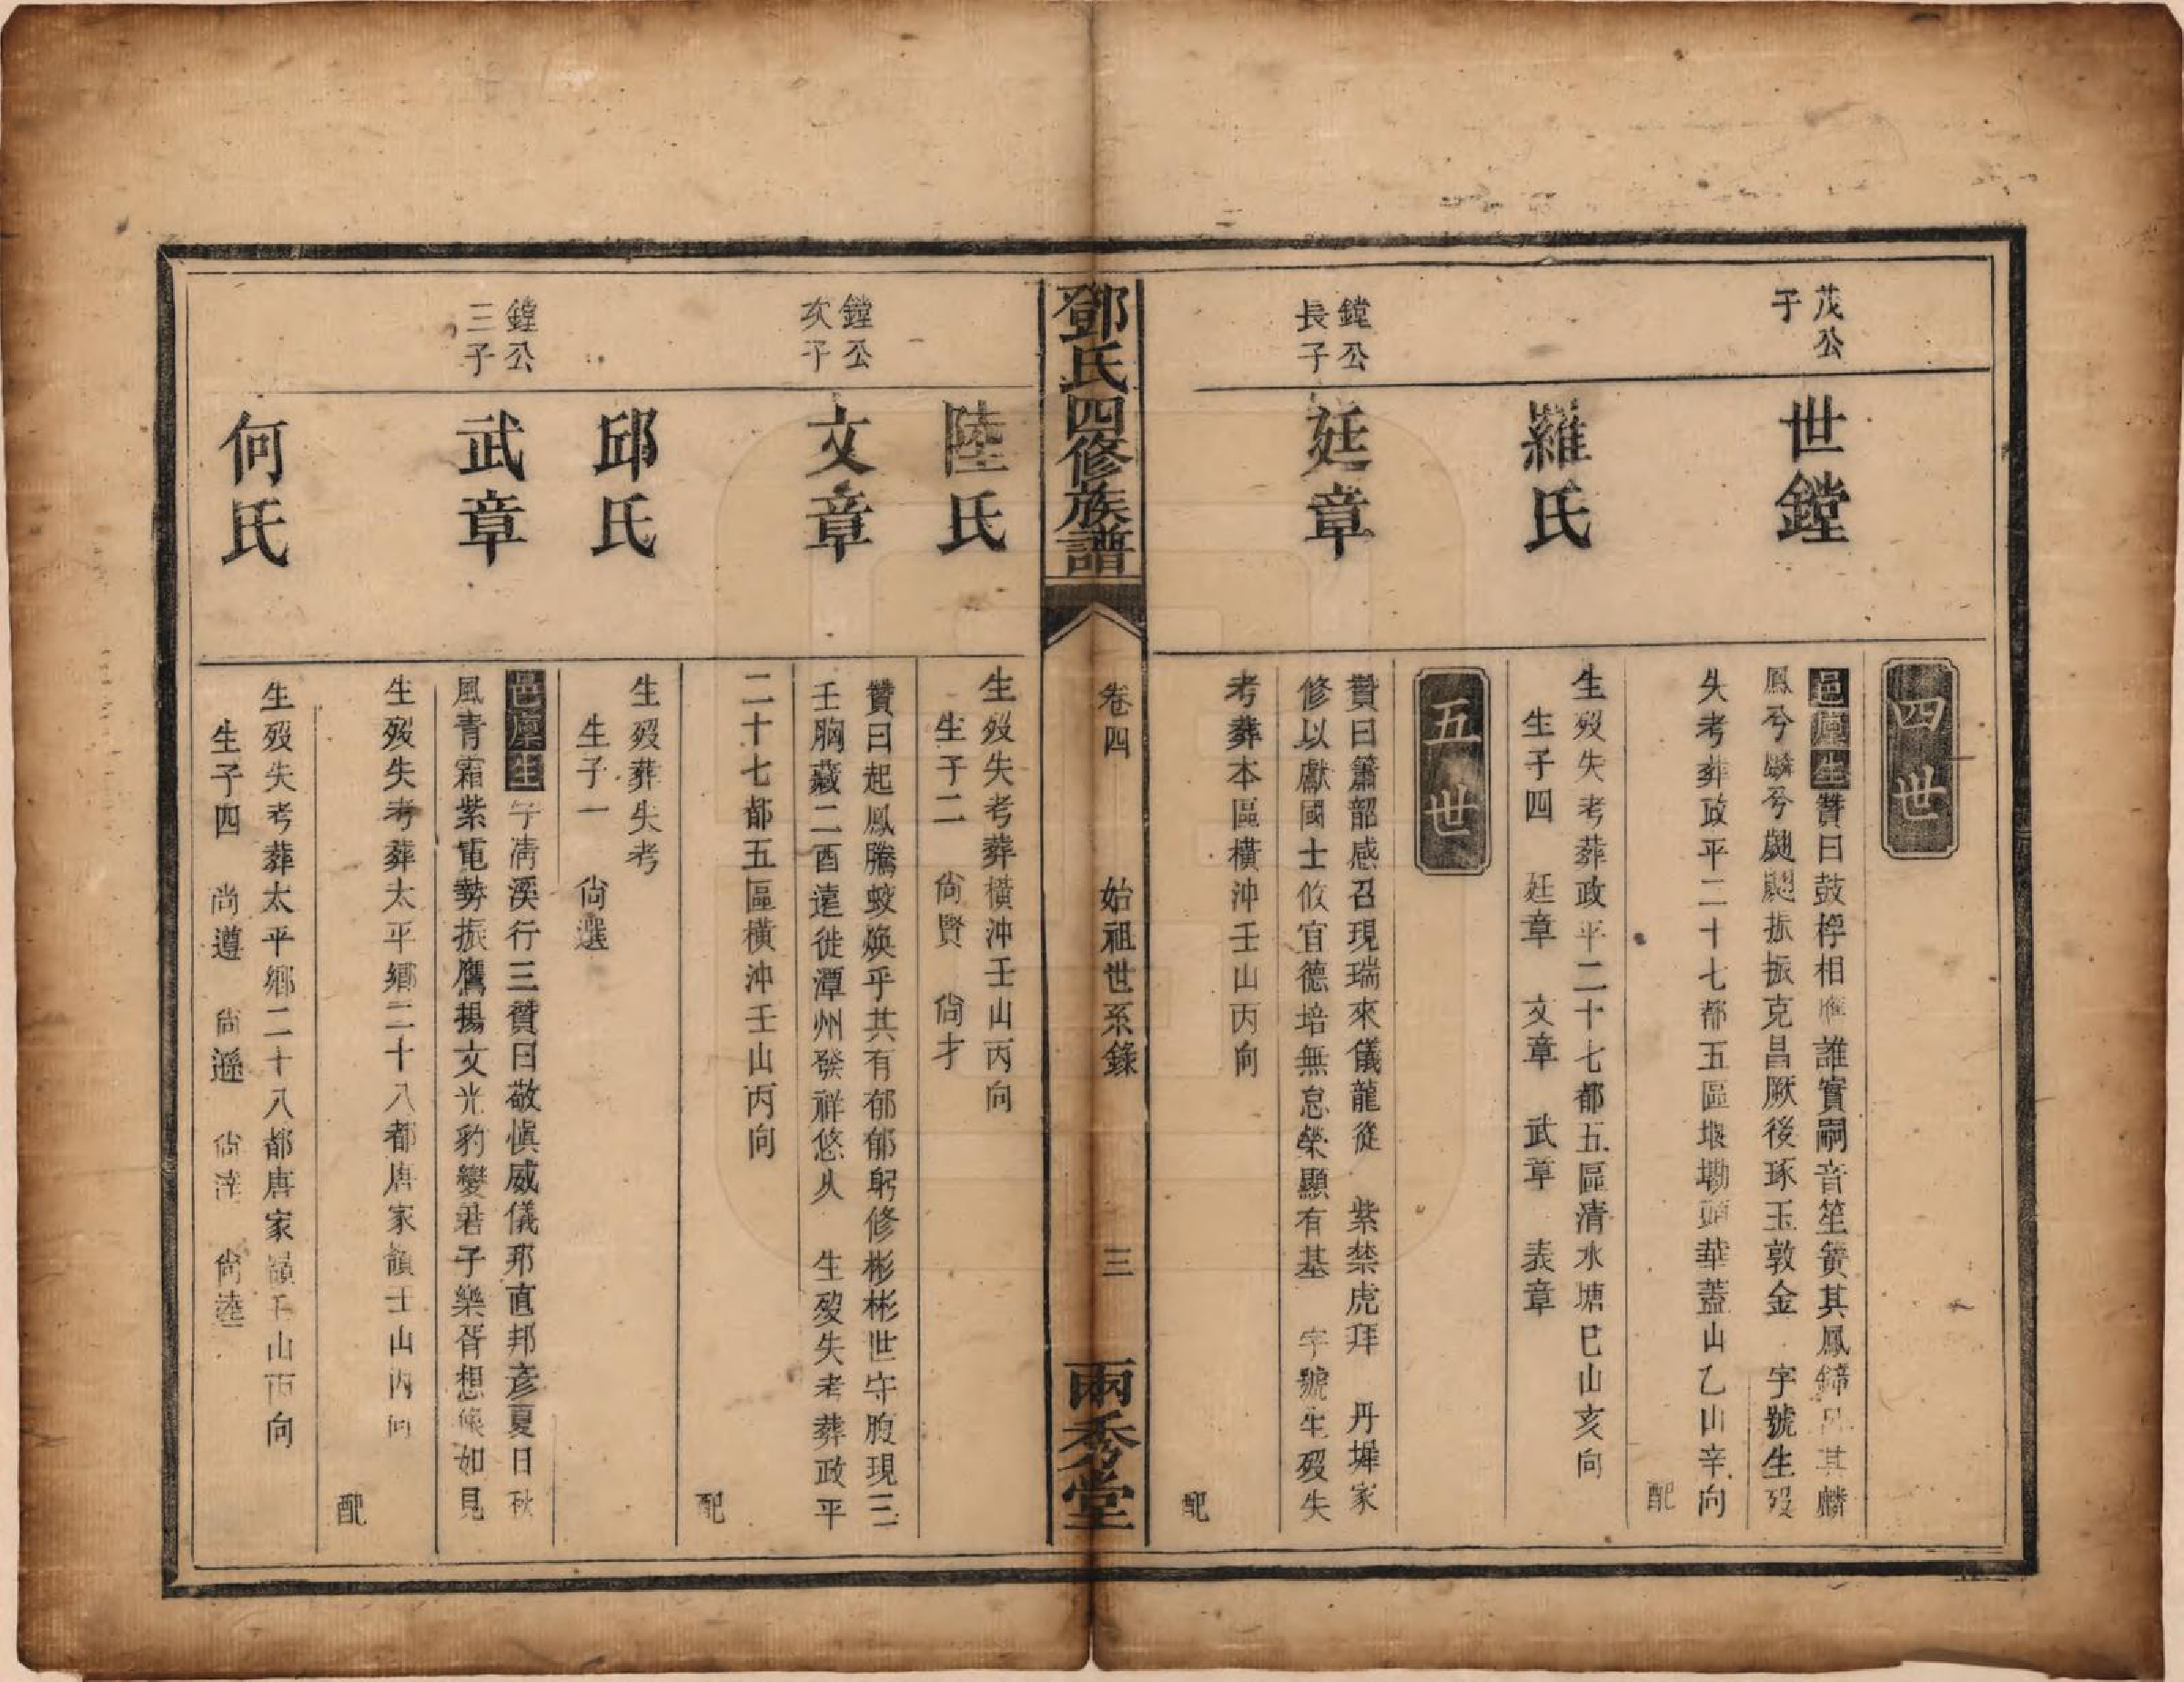 四世
茂公
子
世鏜
邑廩生贊曰鼓桴相應誰實嗣音笙簧其鳳鏘呂其麟
鳳兮麟兮勰勰振振克昌厥後琢玉敦金 字號生歿
失考葬政平二十七都五區堰墈頭華蓋山乙山辛向
配
羅氏
生歿失考葬政平二十七都五區清水塘巳山亥向
生子四 廷章 文章 武章 表章
五世
鏜公
長子
廷章
贊曰簫韶感召現瑞來儀龍從 紫禁虎拜 丹墀家
修以獻國士攸宜德培無怠榮顯有基 字號生歿失
考葬本區橫沖壬山丙向
配
鄧氏四修族譜
卷四
始祖世系錄
三
兩秀堂
陸氏
生歿失考葬橫沖壬山丙向
生子二 尙賢 尙才
鏜公
次子
文章
贊曰起鳳騰蛟煥乎其有郁郁躬修彬彬世守腹現三
壬胸藏二酉遠徙潭州發祥悠久 生歿失考葬政平
二十七都五區橫沖壬山丙向
配
邱氏
生歿葬失考
生子一 尙選
鏜公
三子
武章
邑廩生字淸溪行三贊曰敬愼威儀邦直邦彥夏日秋
風青霜紫電勢振鷹揚文光豹變君子樂胥想像如見
生歿失考葬太平鄉二十八都唐家嶺壬山丙向
配
何氏
生歿失考葬太平鄉二十八都唐家嶺壬山丙向
生子四 尚遵 尙遜 尙 尙陸